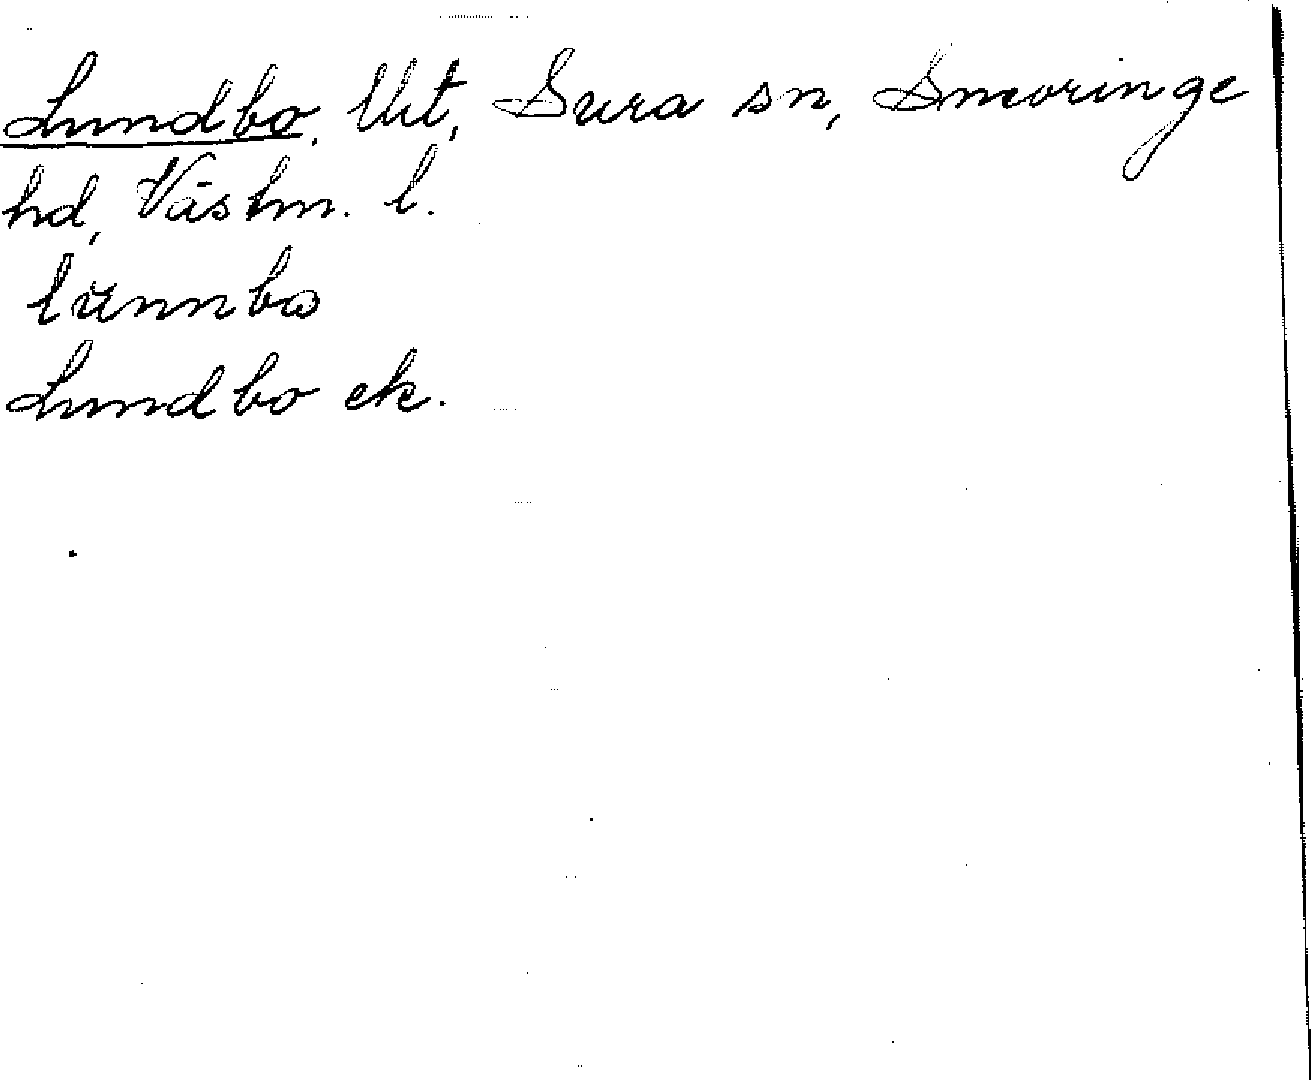 Lundbo, Utt, Sura sn, Snevringe
hd, Västm. l.
lŭnnbω
Lundbo ek.